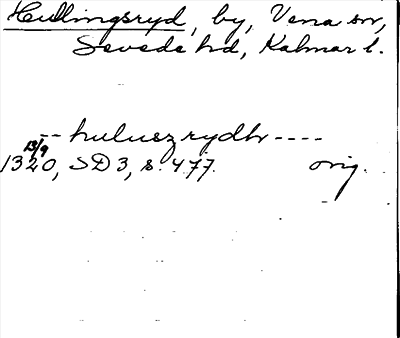 Hullingsryd, by, Vena sn,
Sevede hd, Kalmar l.
-- huluszrydh ----
13/9
1320, SD 3, s. 477. orig.